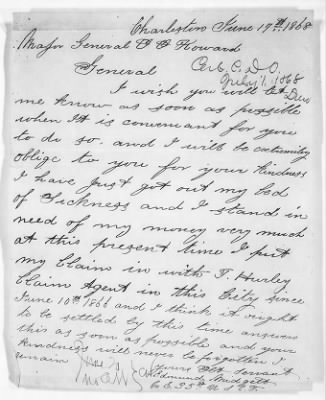 Charleston June 19th 1868
Major General O O Howard
General
July 1. 1868
I wish you will let
me know as soon as possible
when It is convenant for you
to do so. and I will be extremely
oblige to you for your kindness
I have Just got out my bed
of Sickness and I stand in
need of my money very much
at this present time I put
my Claim in with T. Hurley
Claim Agent in this City since
June 10th 1866 and I think it right
to be settled by this time answer
this as soon as possible and your
kindness will never be forgotten I
remain yours Obt Servant
Edmund
Co